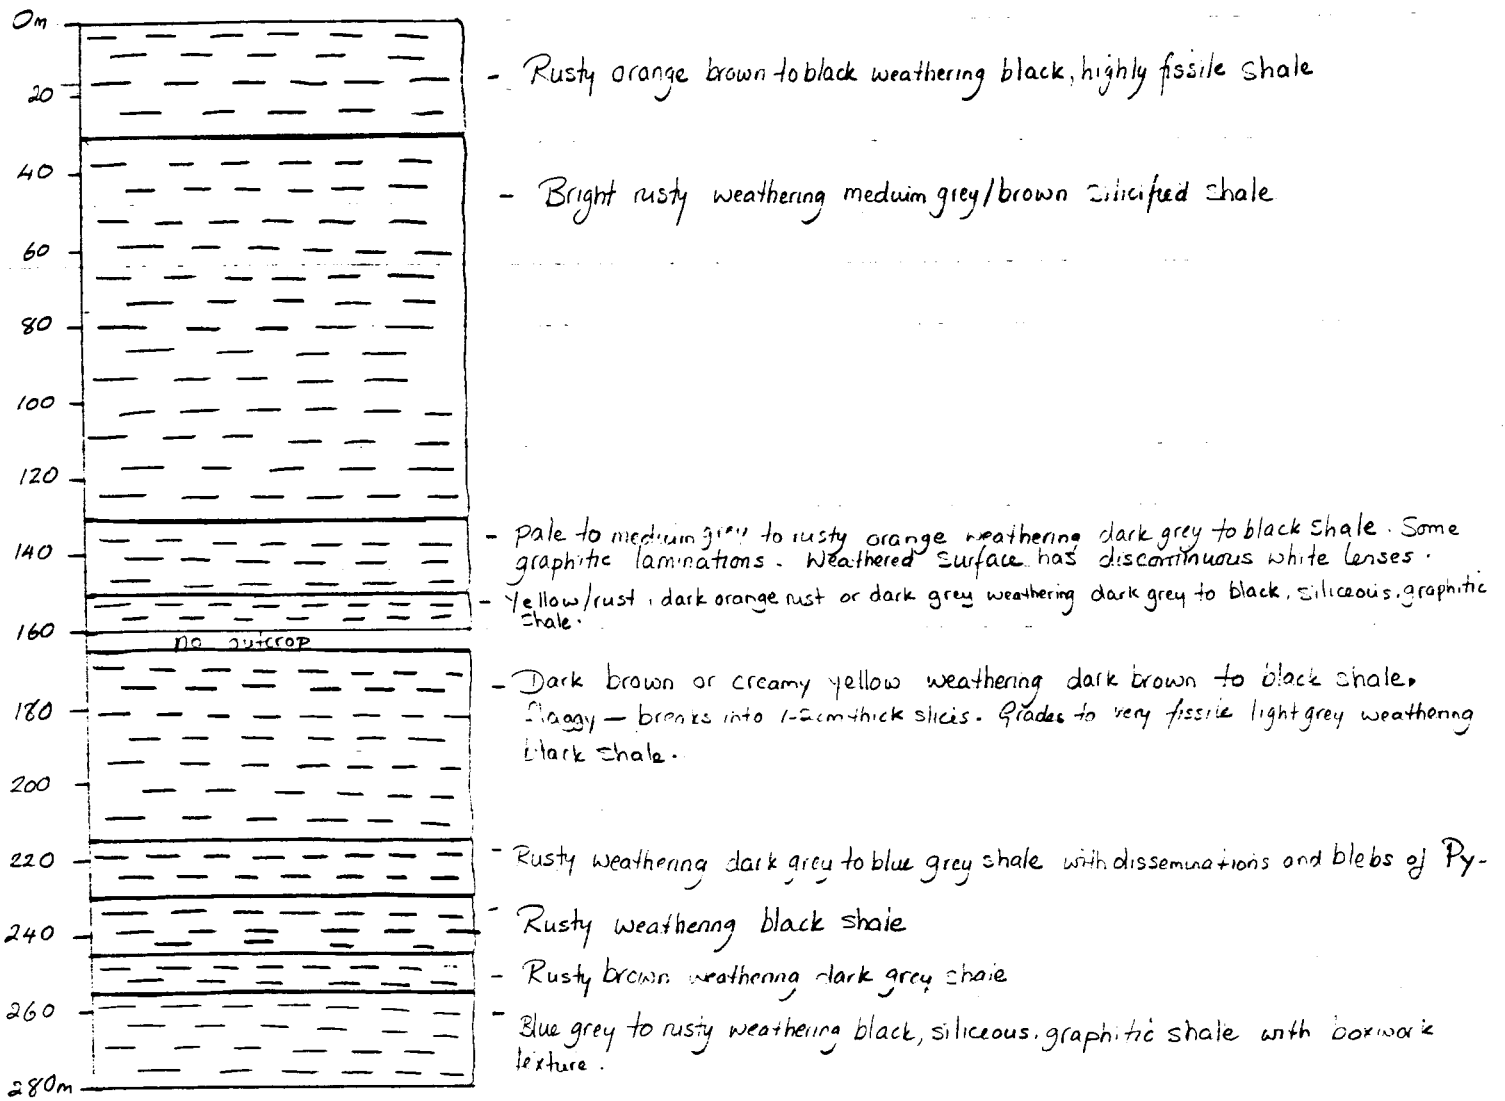 0m
- Rusty orange brown to black weathering black, highly fissile shale
20
40
- Bright rusty weathering meduim grey/brown silicified shale
60
80
100
120
- pale to meduim grey to rusty orange weathering dark grey to black shale. Some
graphitic laminations. Weathered surface has discontinuous white lenses.
140
- Yellow/rust, dark orange rust or dark grey weathering dark grey to black, siliceous, graphitic
shale.
160
no outcrop
- Dark brown or creamy yellow weathering dark brown to black shale.
flaggy — breaks into 1-2cm thick slices. Grades to very fissile light grey weathering
black shale.
180
200
- Rusty weathering dark grey to blue grey shale with disseminations and blebs of Py-
220
- Rusty weathering black shale
240
- Rusty brown weathering dark grey shale
260
- Blue grey to rusty weathering black, siliceous, graphitic shale with boxwork
texture.
280m